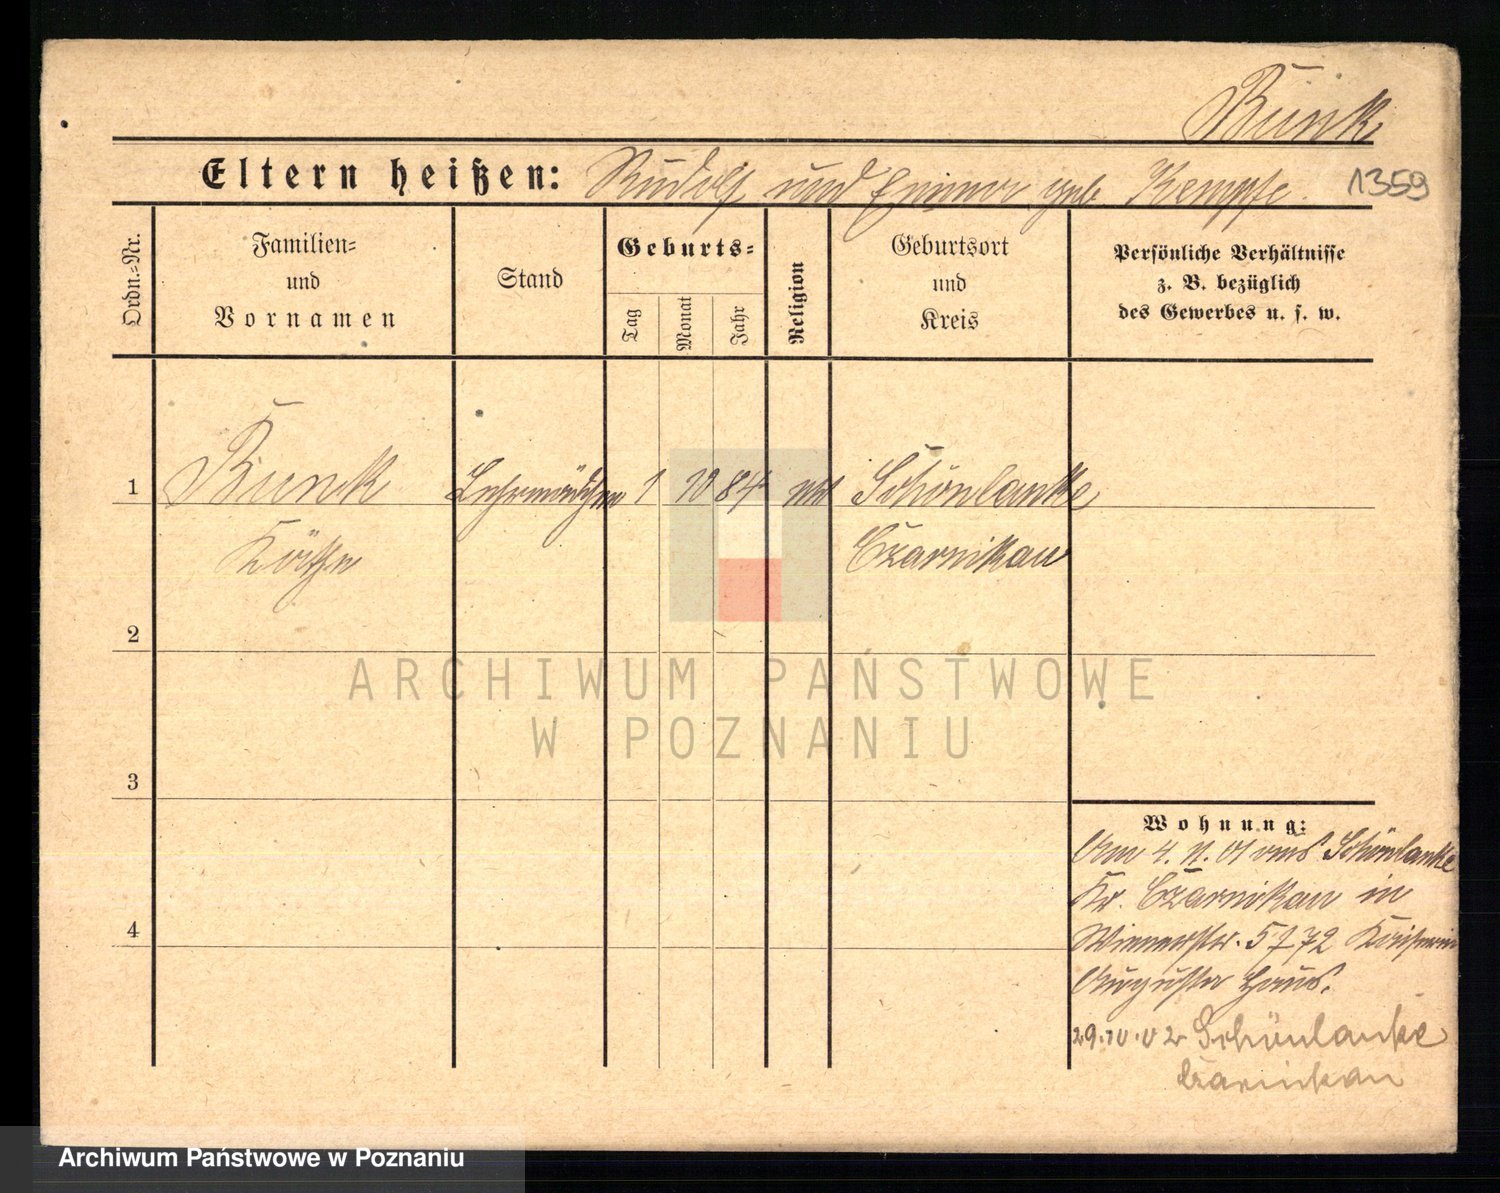 Bunk
Eltern heißen: Rudolf und Emma geb. Kempfe.
1359
Ordn.=Nr.
Familien=
und
Vornamen
Stand
Geburts=
Tag
Monat
Jahr
Religion
Geburtsort
und
Kreis
Persönliche Verhältnisse
z. B. bezüglich
des Gewerbes u. s. w.
1 Bunk Lehrmädchen 1 10 84 Schönlanke
Käthe Czarnikau
2
3
4
ARCHIWUM PAŃSTWOWE
W POZNANIU
Wohnung:
Am 4. 11. 01 aus Schönlanke
Kr. Czarnikau in
Wienerstr. 5 Kaiserin
Augusta Haus.
29.10.02 Schönlanke
Czarnikau
Archiwum Państwowe w Poznaniu